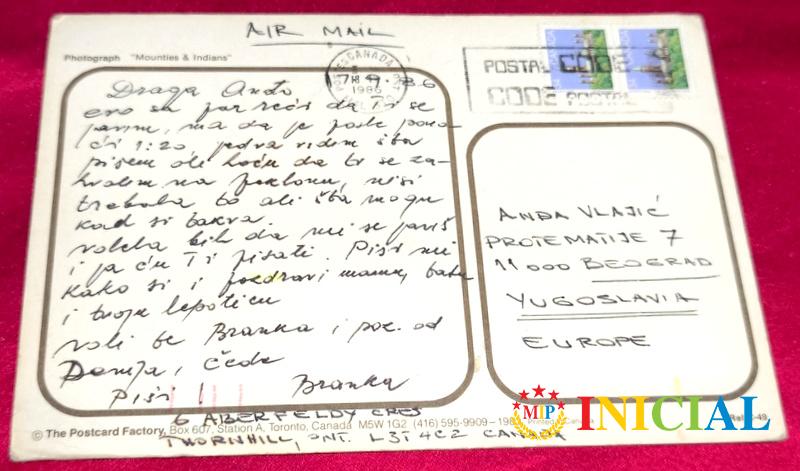 AIR MAIL
Photograph "Mounties & Indians"
CANADA
1986
POSTAL CODE
CODE POSTAL
Draga Anđo
evo sa par reči da Ti se
javim, ma da je posle pono-
ći 1:20, jedva vidim šta
pišem ali hoću da ti se za-
hvalim na poklonu, nisi
trebala to ali šta mogu
kad si takva.
volela bih da mi se javiš
i ja ću Ti pisati. Piši mi
kako si i pozdravi mamu, batu
i tvoju lepoticu
voli te Branka i poz. od
i Čede
Piši! Branka
6 ABERFELDY CRES
THORNHILL, ONT. L3T4C2 CANADA
ANĐA VLAJIĆ
PROTE MATIJE 7
11000 BEOGRAD
YUGOSLAVIA
EUROPE
© The Postcard Factory, Box 607, Station A, Toronto, Canada M5W 1G2 (416) 595-9909 -
Printed
MIP
INICIAL